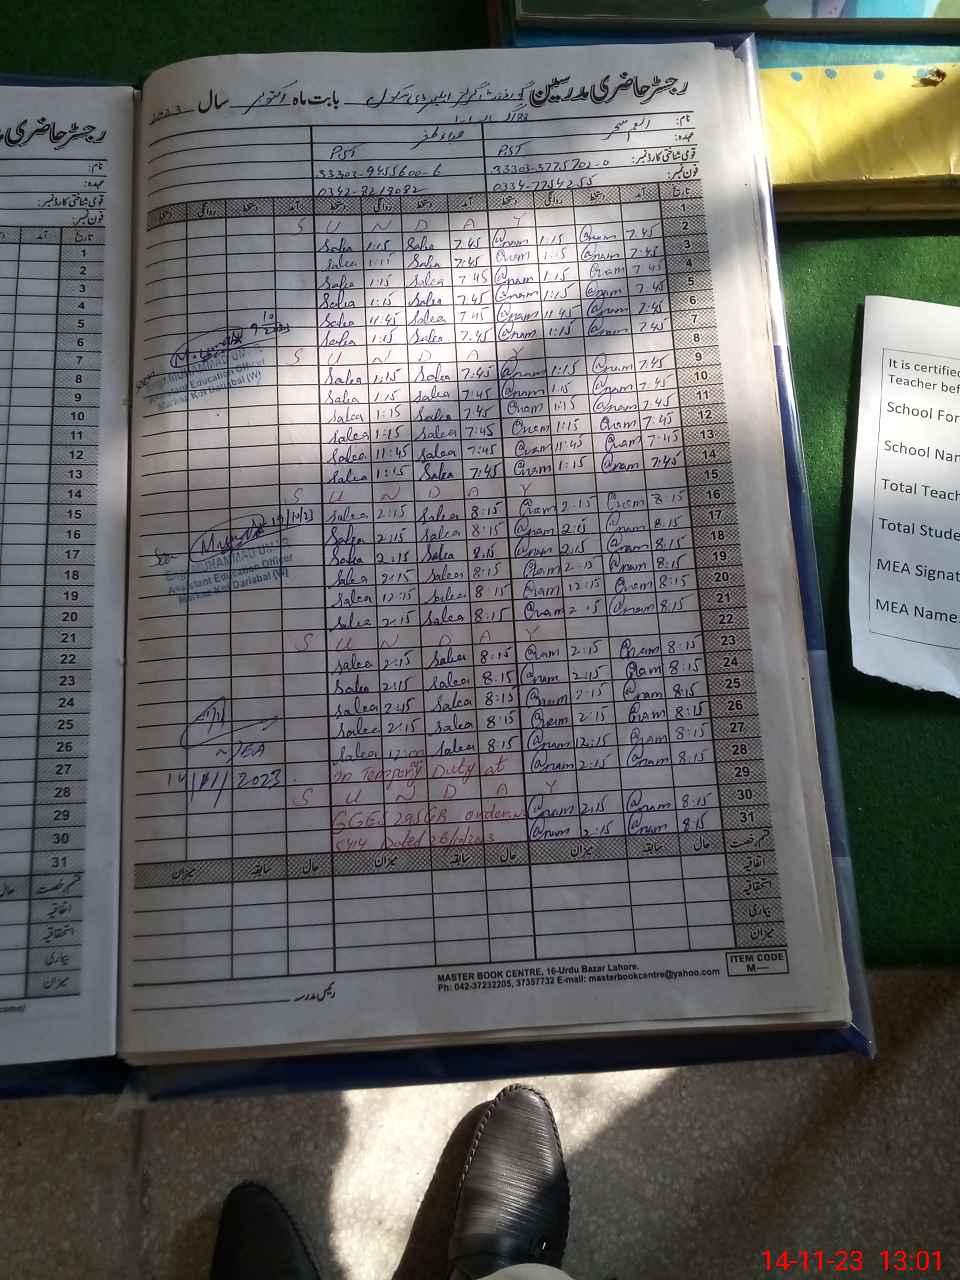 رجسٹر حاضری مدرسین بابت ماہ اکتوبر سال 2023
نام:
عہدہ: PST PST
قومی شناختی کارڈ نمبر: 33303-3775702-0 33303-9455600-6
فون نمبر: 0334-7754255 0342-8218082
تاریخ آمد دستخط روانگی دستخط آمد دستخط روانگی دستخط آمد دستخط روانگی دستخط
1 SUNDAY
2 Salea 1:15 Salea 7:45 @nam 1:15 @nam 7:45
3 Salea 1:15 Salea 7:45 @nam 1:15 @nam 7:45
4 Salea 1:15 Salea 7:45 @nam 1:15 @nam 7:45
5 Salea 1:15 Salea 7:45 @nam 1:15 @nam 7:45
6 Salea 11:45 Salea 7:45 @nam 11:45 @nam 7:45
7 Salea 1:15 Salea 7:45 @nam 1:15 @nam 7:45
8 SUNDAY
9 Salea 1:15 Salea 7:45 @nam 1:15 @nam 7:45
10 Salea 1:15 Salea 7:45 @nam 1:15 @nam 7:45
11 Salea 1:15 Salea 7:45 @nam 1:15 @nam 7:45
12 Salea 1:15 Salea 7:45 @nam 1:15 @nam 7:45
13 Salea 11:45 Salea 7:45 @nam 11:45 @nam 7:45
14 Salea 1:15 Salea 7:45 @nam 1:15 @nam 7:45
15 SUNDAY
16 Salea 2:15 Salea 8:15 @nam 2:15 @nam 8:15
17 Salea 2:15 Salea 8:15 @nam 2:15 @nam 8:15
18 Salea 2:15 Salea 8:15 @nam 2:15 @nam 8:15
19 Salea 2:15 Salea 8:15 @nam 2:15 @nam 8:15
20 Salea 12:15 Salea 8:15 @nam 12:15 @nam 8:15
21 Salea 2:15 Salea 8:15 @nam 2:15 @nam 8:15
22 SUNDAY
23 Salea 2:15 Salea 8:15 @nam 2:15 @nam 8:15
24 Salea 2:15 Salea 8:15 @nam 2:15 @nam 8:15
25 Salea 2:15 Salea 8:15 @nam 2:15 @nam 8:15
26 Salea 2:15 Salea 8:15 @nam 2:15 @nam 8:15
27 Salea Salea 8:15 @nam 12:15 @nam 8:15
28 on Tempory Duty at @nam 2:15 @nam 8:15
29 SUNDAY
30 GGES 295GB order No @nam 2:15 @nam 8:15
31 Dated @nam 2:15 @nam 8:15
قسم رخصت حال سابقہ میزان حال سابقہ میزان حال سابقہ میزان
اتفاقیہ
استحقاقیہ
بیماری
میزان
ITEM CODE
M—
MASTER BOOK CENTRE, 16-Urdu Bazar Lahore.
Ph: 042-37232205, 37357732 E-mail: masterbookcentre@yahoo.com
رئیس مدرسہ
Assistant Education Officer
19/10/23
MUHAMMAD UMAR
Assistant Education Officer
MEA
14/11/2023
رجسٹر حاضری
نام:
عہدہ:
قومی شناختی کارڈ نمبر:
فون نمبر:
تاریخ آمد
1
2
3
4
5
6
7
8
9
10
11
12
13
14
15
16
17
18
19
20
21
22
23
24
25
26
27
28
29
30
31
قسم رخصت
اتفاقیہ
استحقاقیہ
بیماری
میزان
It is certified
Teacher bef
School For
School Nam
Total Teach
Total Stude
MEA Signat
MEA Name:
14-11-23 13:01